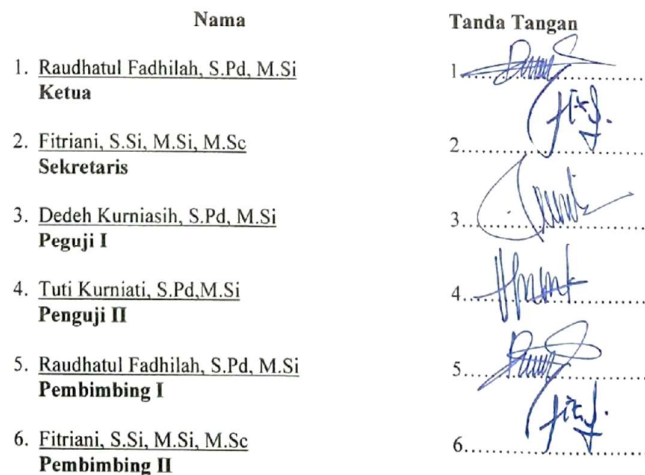 Nama Tanda Tangan
1. Raudhatul Fadhilah, S.Pd, M.Si 1
Ketua
2. Fitriani, S.Si, M.Si, M.Sc 2
Sekretaris
3. Dedeh Kurniasih, S.Pd, M.Si 3
Peguji I
4. Tuti Kurniati, S.Pd,M.Si 4
Penguji II
5. Raudhatul Fadhilah, S.Pd, M.Si 5
Pembimbing I
6. Fitriani, S.Si, M.Si, M.Sc 6
Pembimbing II